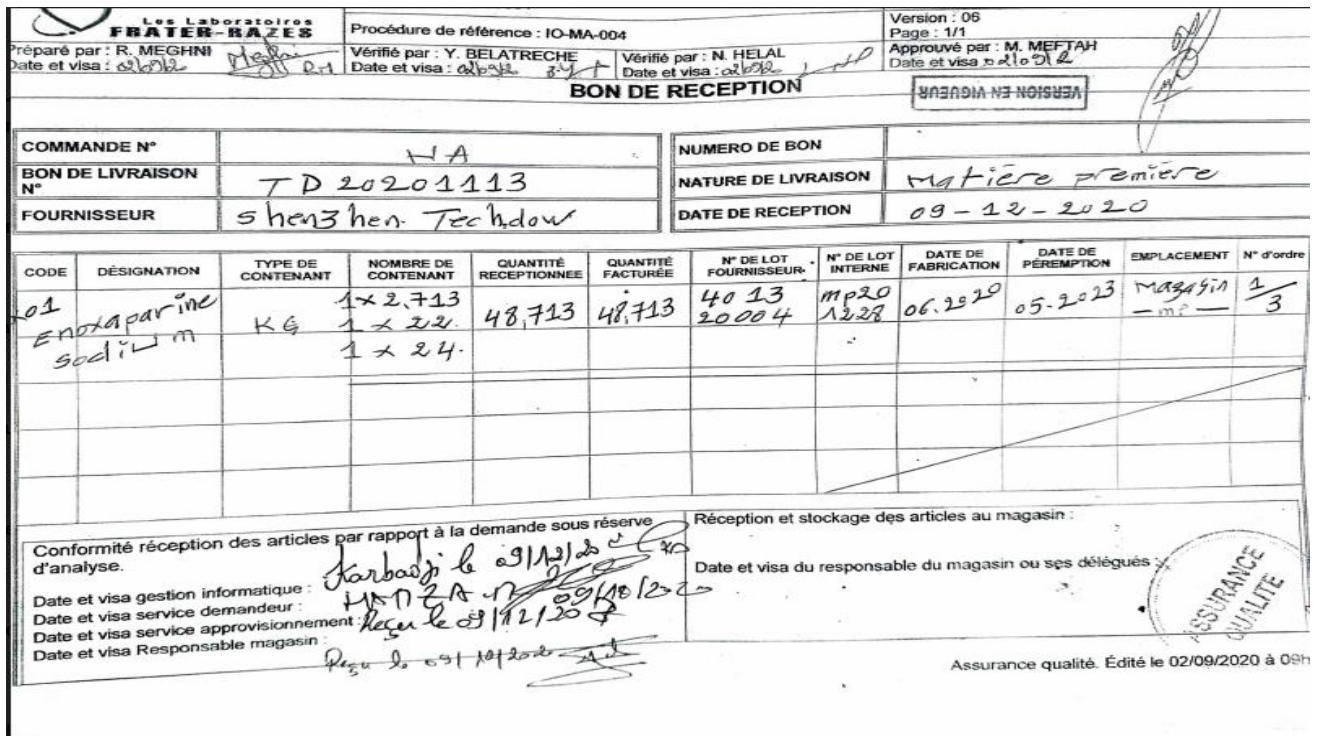 Les Laboratoires
FRATER-RAZES
Procédure de référence : IO-MA-004
Version : 06
Page : 1/1
Préparé par : R. MEGHNI
Date et visa :
Vérifié par : Y. BELATRECHE
Date et visa :
Vérifié par : N. HELAL
Date et visa :
Approuvé par : M. MEFTAH
Date et visa
BON DE RECEPTION
VERSION EN VIGUEUR
COMMANDE N° NA
BON DE LIVRAISON N° TD20201113
FOURNISSEUR Shenzhen. Techdow
NUMERO DE BON
NATURE DE LIVRAISON Matière première
DATE DE RECEPTION 09-12-2020
CODE DÉSIGNATION TYPE DE CONTENANT NOMBRE DE CONTENANT QUANTITÉ RECEPTIONNEE QUANTITÉ FACTURÉE N° DE LOT FOURNISSEUR N° DE LOT INTERNE DATE DE FABRICATION DATE DE PÉREMPTION EMPLACEMENT N° d'ordre
01 Enoxaparine sodium KG 1x2,713 48,713 48,713 4013 20004 mp20 1228 06.2020 05.2023 Magasin mp 1/3
1 x 22.
1 x 24.
Conformité réception des articles par rapport à la demande sous réserve
d'analyse.
Date et visa gestion informatique : le 09/12/20
Date et visa service demandeur :
Date et visa service approvisionnement : Reçu le 09/12/20
Date et visa Responsable magasin : Reçu le
Réception et stockage des articles au magasin :
Date et visa du responsable du magasin ou ses délégués :
ASSURANCE
QUALITE
Assurance qualité. Édité le 02/09/2020 à 09h